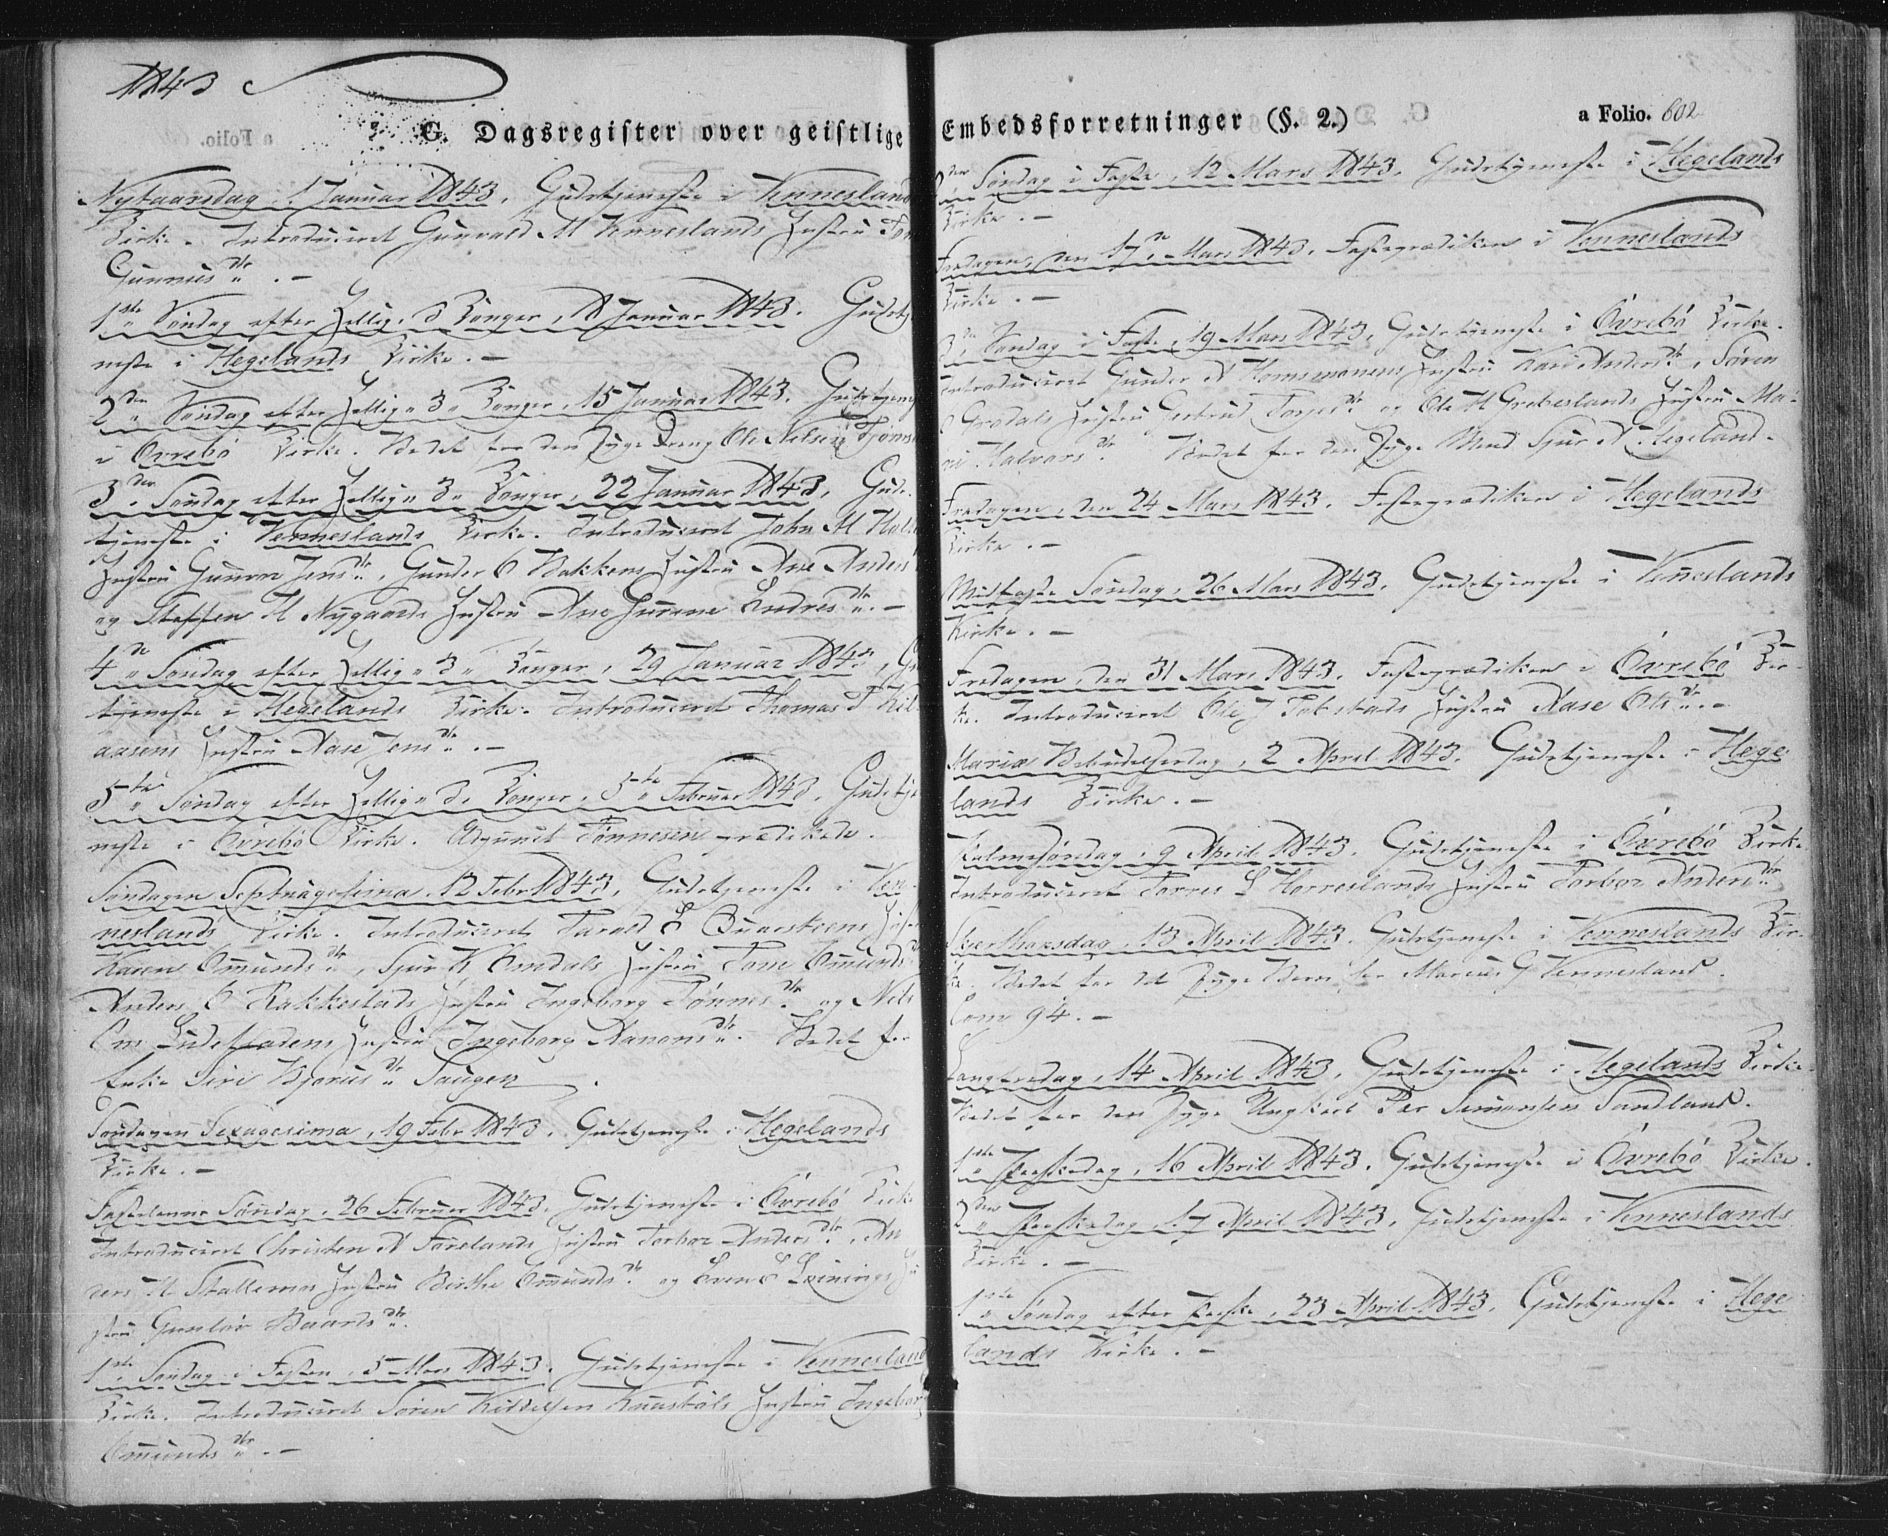 1843
G. Dagsregister over geistlige Embedsforretninger (§. 2.)
a Folio. 602
Nytaarsdag, 1 Januar 1843, Gudstjeneste i Vennesland
Kirke. Introduceret Gunvald M Venneslands Hustru Tone
Gunnus dtr. –
1ste Søndag efter Hellig 3 Konger, 8 Januar 1843. Gudstj
neste i Hegelands Kirke. –
2den Søndag efter Hellig 3 Konger, 15 Januar 1843. Gudstjene
i Øvrebø Kirke. Bedet for den syge Dreng Ole Nilsen Tjoms
3die Søndag efter Hellig 3 Konger, 22 Januar 1843, Guds
tjeneste i Venneslands Kirke. Introduceret John M
Hustru Gunvor Jensdtr, Gunder O Bakkens Hustru Ane Anders
og Steffen H Nygaards Hustru Ane Gurine Endresdtr. –
4de Søndag efter Hellig 3 Konger, 29 Januar 1843, Gu
tjeneste i Hegelands Kirke. Introduceret Thomas T Kil
aasens Hustru Aase Jensdtr. –
5te Søndag efter Hellig 3 Konger, 5te Februar 1843. Gudstje
neste i Øvrebø Kirke. Adjunct Tønnesen prædikede.
Søndagen Septuagesima, 12 Febr 1843, Gudstjeneste i Ven
neslands Kirke. Introduceret Tarald E Qvarsteens Hust
Karen Omunds dtr, Sjur K Omdals Hustru Tone Omundsd
Anders O Rakkestads Hustru Ingeborg Tønnes dtr og Nils
Hustru Ingeborg Aanons dtr. Bedet for
Enke Siri Bjorns dtr Haugen.
Søndagen Sexagesima, 19 Febr 1843, Gudstjeneste i Hegelands
Kirke. –
Fastelavns Søndag, 26 Februar 1843, Gudstjeneste i Øvrebø Kirke
Introduceret Christen N Førelands Hustru Torbor Anders dtr, An
ders H Stallemo Hustru Birthe Omunds dtr og Sven S Leinings Hu
stru Gunlov Baards dtr.
1ste Søndag i Fasten, 5 Mars 1843, Gudstjeneste i Vennesland
Kirke. Introduceret Søren Kittelsen Hustru Ingeborg
Omunds dtr. –
2den Søndag i Faste, 12 Mars 1843, Gudstjeneste i Hegelands
Kirke. –
Fredagen, den 17de Mars 1843, Fasteprædiken i Venneslands
Kirke. –
3de Søndag i Faste, 19 Mars 1843, Gudstjeneste i Øvrebø Kirke.
Introduceret Gunder N Homsmoens Hustru Kari Andersdtr, Søren
Hustru Gertrud Torjes dtr og Ole M Grebeslands Hustru Ma-
ri Halvors dtr. Bedet for den syge Mand Sjur N Hegeland.
Fredagen, den 24 Mars 1843. Fasteprædiken i Hegelands
Kirke. –
Midfaste Søndag, 26 Mars 1843, Gudstjeneste i Venneslands
Kirke. –
Fredagen, den 31 Mars 1843. Fasteprædiken i Øvrebø Kir-
ke. Introduceret Ole J Hustru Aase Ols dtr. –
Mariæ Bebudelsesdag, 2 April 1843. Gudstjeneste i Hege
lands Kirke. –
Palmesøndag, 9 April 1843. Gudstjeneste i Øvrebø Kirke.
Introduceret Torres S Horreslands Hustru Torbor Anders dtr
Skjerthorsdag, 13 April 1843. Gudstjeneste i Venneslands Kir-
ke. Bedet for det syge Barn Marcus G Vennesland.
Com 94. –
Langfredag, 14 April 1843, Gudstjeneste i Hegelands Kirke.
Bedet for den syge Ungkarl Per Simonsen Sandland.
1ste Paaskedag, 16 April 1843. Gudstjeneste i Øvrebø Kirke.
2den Paaskedag, 17 April 1843, Gudstjeneste i Venneslands
Kirke. –
1ste Søndag efter Paaske, 23 April 1843, Gudstjeneste i Hege
lands Kirke. –